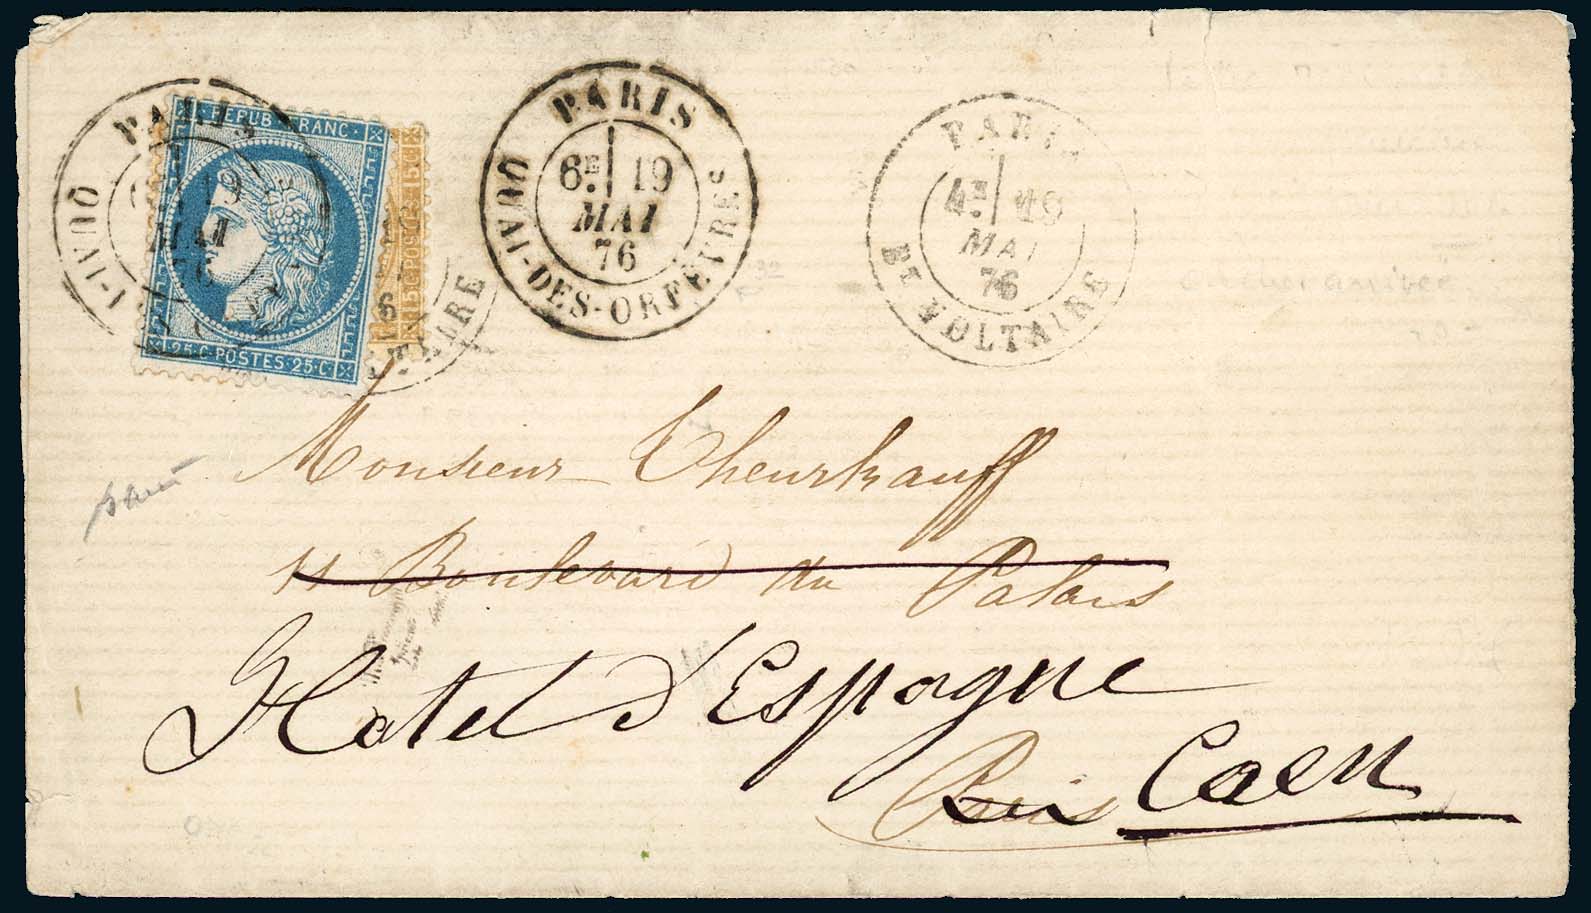 PARIS
QUAI-
19
MAI
76
REPUB FRANC
25·C·POSTES·25·C
15 C POSTES 15 C
PARIS
6E 19
MAI
76
QUAI-DES-ORFÈVRES
PARIS
4E 19
MAI
76
Bt VOLTAIRE
Monsieur Theurkauff
11 Boulevard du Palais
Hotel d'Espagne
Paris Caen